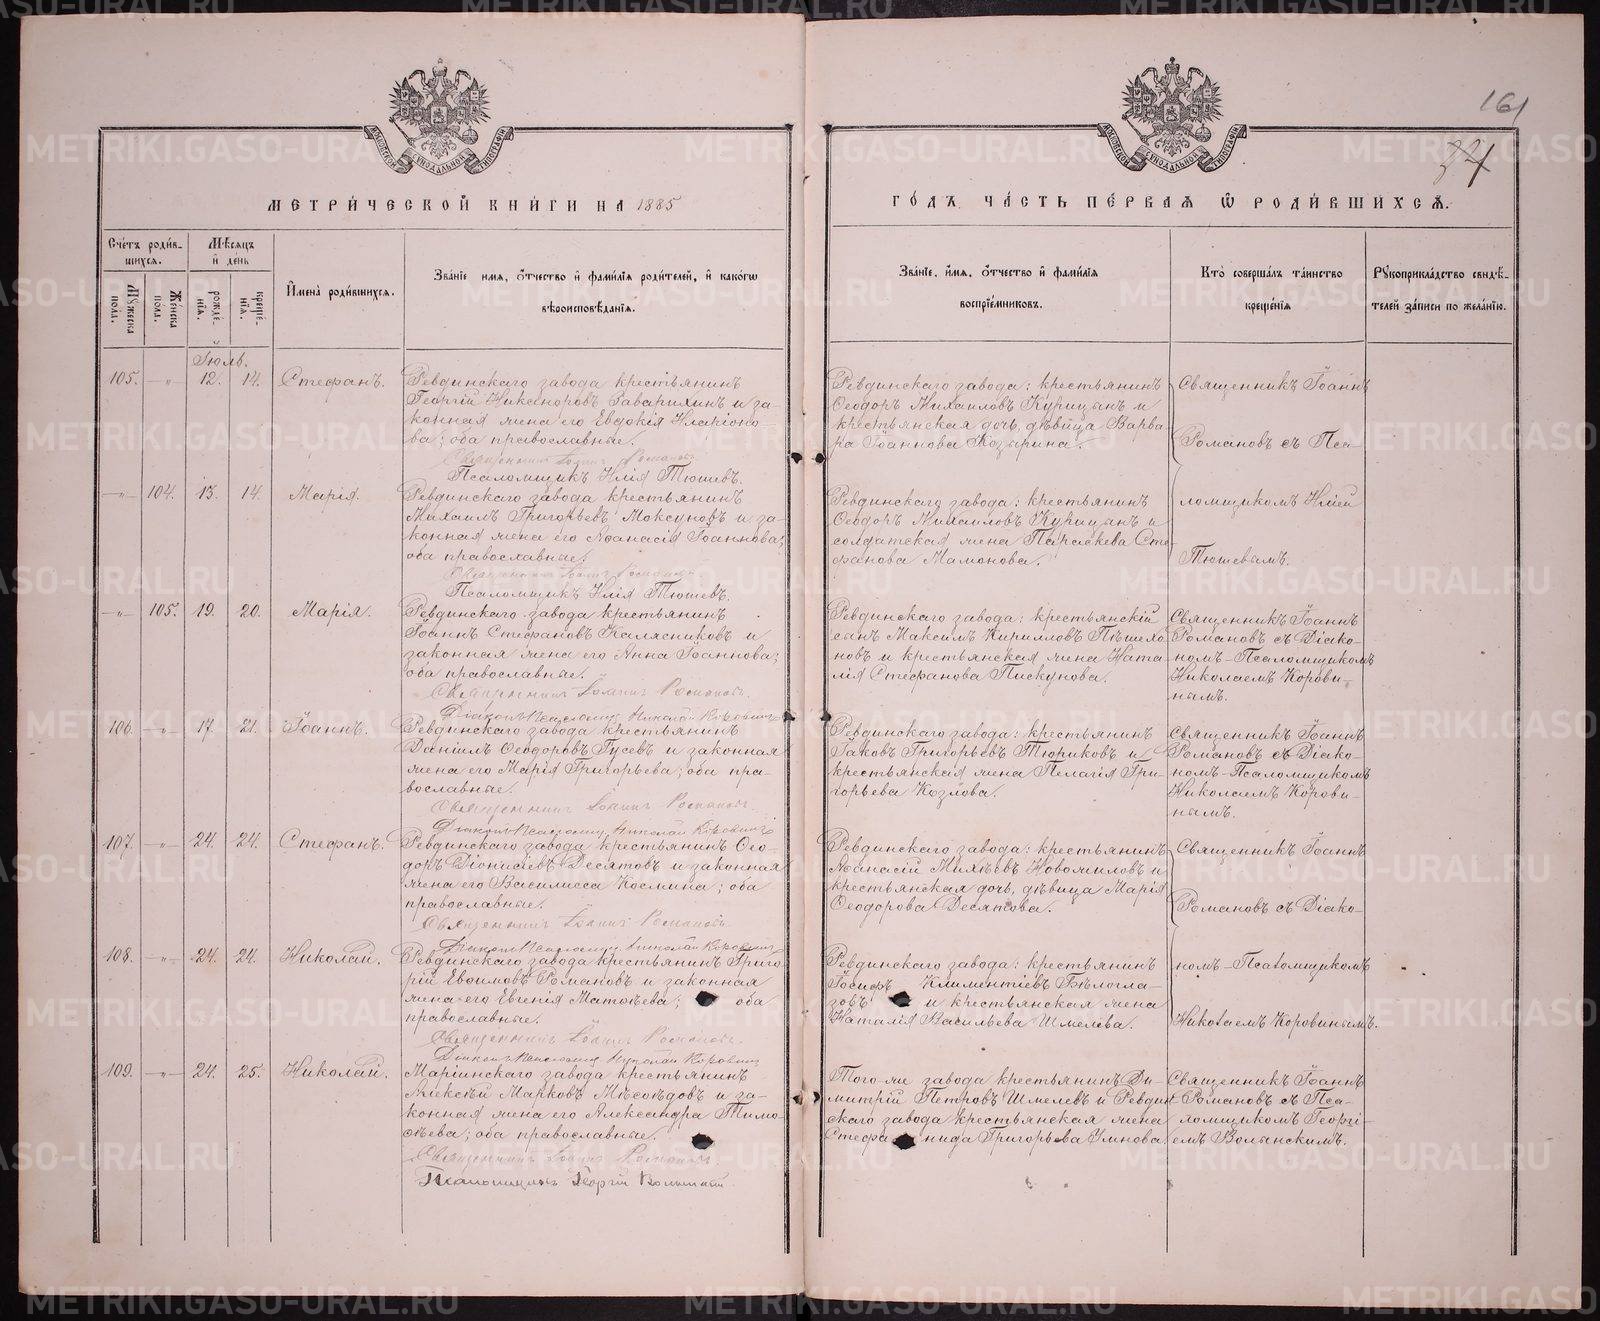 МЕТРИ́ЧЕСКОЙ КНИ́ГИ НА 1885
ГО́ДЪ ЧА́СТЬ ПЕ́РВАЯ Ѽ РОДИ́ВШИХСѦ.
161
Сче́тъ роди́в-
шихся.
Мѣсяцъ
и день
Мꙋжеска
пола.
Же́нска
по́ла.
рожде́-
нїя.
креще́-
нїя.
И҆мена̀ роди́вшихся.
Зва́нїе имя, ѻ҆́тчество и҆ фами́лїя роди́телей, и҆ како́гѡ
вѣроисповѣ́данїя.
Зва́нїе, и҆́мя, ѻ҆́тчество и҆ фами́лїя
воспрїе́мниковъ.
Кто̀ соверша́лъ та́инство
креще́нїя
Рꙋкоприкла́дство свидѣ́-
телей за́писи по жела́нїю.
Іюль.
105. -"- 12. 14. Стефанъ.
Ревдинскаго завода крестьянинъ
Георгій Никаноровъ Гаварихинъ и за-
конная жена его Евдокія Иларіоно-
ва; оба православные.
Священникъ Іоаннъ Романовъ.
Псаломщикъ Илія Тюшевъ.
Ревдинскаго завода: крестьянинъ
Ѳеодоръ Михаиловъ Курицынъ и
крестьянская дочь, дѣвица Варва-
ра Іоаннова Козырина.
Священникъ Іоаннъ
Романовъ съ Пса-
-"- 104. 13. 14. Марія.
Ревдинскаго завода крестьянинъ
Михаилъ Григорьевъ Моксуновъ и за-
конная жена его Аѳанасія Іоаннова;
оба православные.
Священникъ Іоаннъ Романовъ
Псаломщикъ Илія Тюшевъ.
Ревдинскаго завода: крестьянинъ
Ѳеодоръ Михаиловъ Курицынъ и
солдатская жена Параскева Сте-
фанова Мамонова.
ломщикомъ Иліей
Тюшевымъ.
-"- 105. 19. 20. Марія.
Ревдинскаго завода крестьянинъ
Іоаннъ Стефановъ Калясниковъ и
законная жена его Анна Іоаннова;
оба православные.
Священникъ Іоаннъ Романовъ.
Діаконъ-Псаломщ. Николай Коровинъ
Ревдинскаго завода: крестьянскій
сынъ Максимъ Кирилловъ Пѣшело-
новъ и крестьянская жена Ната-
лія Стефанова Пискунова.
Священникъ Іоаннъ
Романовъ съ Діако-
номъ-Псаломщикомъ
Николаемъ Корови-
нымъ.
106. -"- 17. 21. Іоаннъ.
Ревдинскаго завода крестьянинъ
Даніилъ Ѳеодоровъ Гусевъ и законная
жена его Марія Григорьева; оба пра-
вославные.
Священникъ Іоаннъ Романовъ.
Діаконъ-Псаломщ. Николай Коровинъ
Ревдинскаго завода: крестьянинъ
Іаковъ Григорьевъ Тюриковъ и
крестьянская жена Пелагія Гри-
горьева Козлова.
Священникъ Іоаннъ
Романовъ съ Діако-
номъ-Псаломщикомъ
Николаемъ Корови-
нымъ.
107. -"- 24. 24. Стефанъ.
Ревдинскаго завода крестьянинъ Ѳео-
доръ Діонисіевъ Десятовъ и законная
жена его Василисса Космина; оба
православные.
Священникъ Іоаннъ Романовъ.
Діаконъ-Псаломщ. Николай Коровинъ
Ревдинскаго завода: крестьянинъ
Аѳанасій Михѣевъ Новожиловъ и
крестьянская дочь, дѣвица Марія
Ѳеодорова Десятова.
Священникъ Іоаннъ
Романовъ съ Діако-
108. -"- 24. 24. Николай.
Ревдинскаго завода крестьянинъ Григо-
рій Евѳимовъ Романовъ и законная
жена его Евгенія Матѳѣева; оба
православные.
Священникъ Іоаннъ Романовъ.
Діаконъ-Псаломщ. Николай Коровинъ
Ревдинскаго завода: крестьянинъ
Іосифъ Климентіевъ Бѣлогла-
зовъ и крестьянская жена
Наталія Васильева Шмелева.
номъ-Псаломщикомъ
Николаемъ Коровинымъ.
109. -"- 24. 25. Николай.
Маріинскаго завода крестьянинъ
Алексѣй Марковъ Мѣсоѣдовъ и за-
конная жена его Александра Тимо-
ѳѣева; оба православные.
Священникъ Іоаннъ Романовъ.
Псаломщикъ Георгій Волынскій
Того же завода крестьянинъ Ди-
митрій Петровъ Шмелевъ и Ревдин-
скаго завода крестьянская жена
Стефанида Григорьева Умнова
Священникъ Іоаннъ
Романовъ съ Пса-
ломщикомъ Георгі-
емъ Волынскимъ.